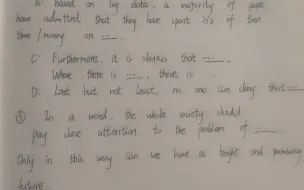 B: Based on big data, a majority of people
have admitted that they have spent 2/3 of their
time / money on ....
C: Furthermore, it is obvious that ....
Where there is ...., there is .
D: Last but not least, no one can deny that ....
③ In a word, the whole society should
pay close attention to the problem of ....
Only in this way can we have a bright and promising
future.